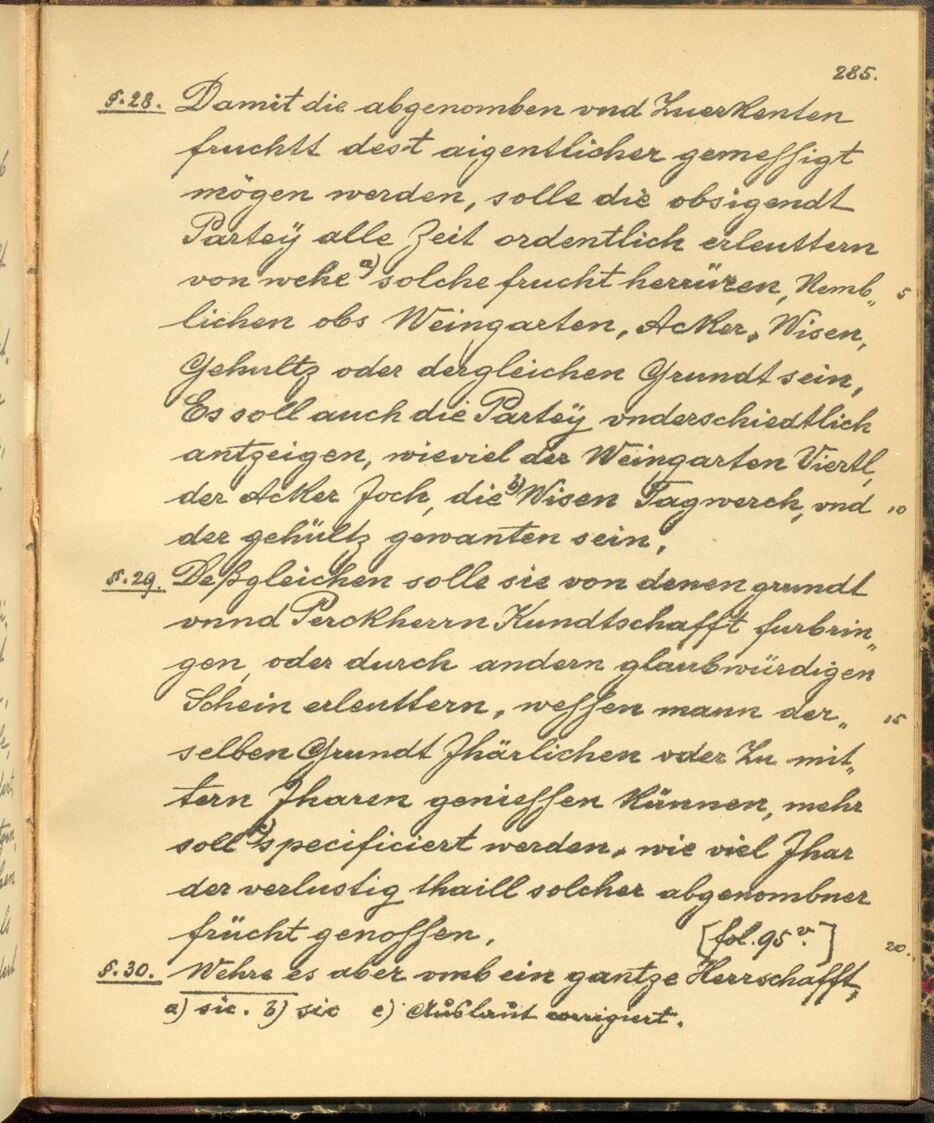 285.
§.28. Damit die abgenomben vnd Zuerkenten
fruchtt dest aigentlicher gemessigt
mögen werden, solle die obsigendt
Parteÿ alle Zeit ordentlich erleuttern
von wehe a) solche frucht herrüren, Nemb„ 5
lichen obs Weingarten, Acker, Wisen,
Gehultz oder dergleichen Grundt sein,
Es soll auch die Parteÿ vnderschiedtlich
antzeigen, wieviel der Weingarten Viertl,
der Acker Joch, die b) Wisen Tagwerch, vnd 10
der gehültz gewanten sein.
§.29. Deßgleichen solle sie von denen grundt
vnnd Perckherrn Kundtschafft furbrin„
gen, oder durch andern glaubwürdigen
Schein erleuttern, wessen mann der„ 15
selben Grundt Jhärlichen oder Zu mit„
tern Jharen geniessen Künnen, mehr
soll c) specificiert werden, wie viel Jhar
der verlustig thaill solcher abgenombner
frücht genossen. [fol. 95 v.] 20.
§.30. Wehre es aber vmb ein gantze Herrschafft,
a) sic. b) sic c) Auslaut corrigiert.